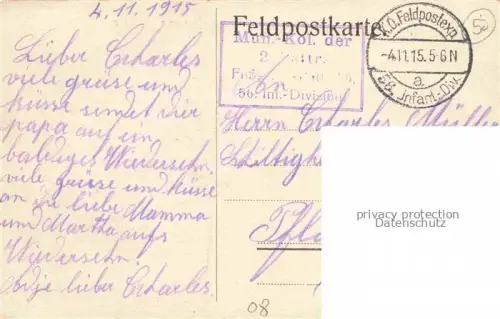 4.11.1915
Feldpostkarte
Lieber Charles
viele grüse und
küsse sendet dir
papa auf ein
baldiges Wiedersehn.
viele grüsse und küsse
an die liebe Mamma
und Martha aufs
Wiedersehn!
adje lieber Charles
Mun.-Kol. der
2
56. Inf.-Division
K.D. Feldpostexp.
-4.11.15.5-6N
a.
56. Infant.-Div.
Herrn Charles Müller
privacy protection
Datenschutz
08